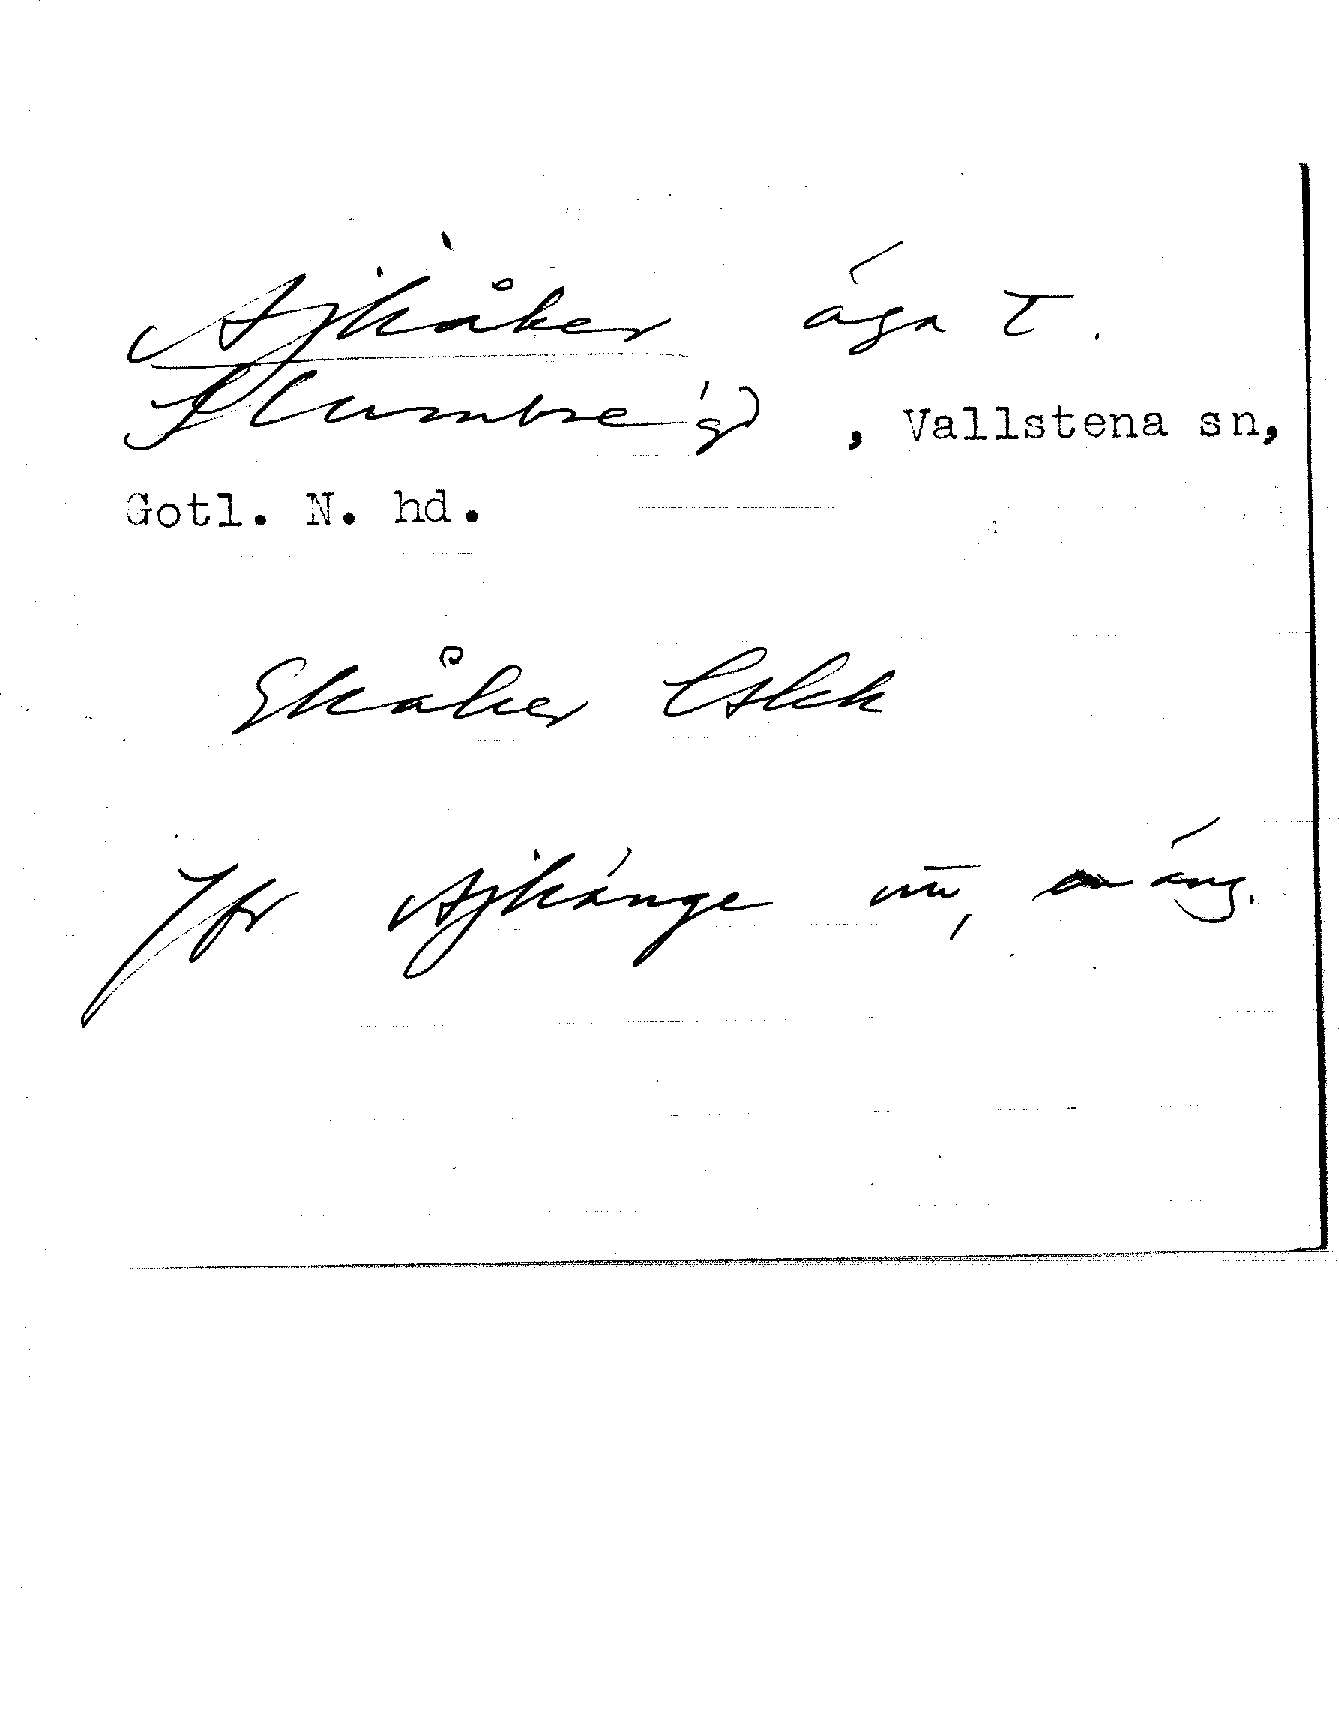 Ajkåker åga t.
Slumbre gd, Vallstena sn,
Gotl. N. hd.
Ekåker Eskk
Jfr Ajkänge nu, äng.